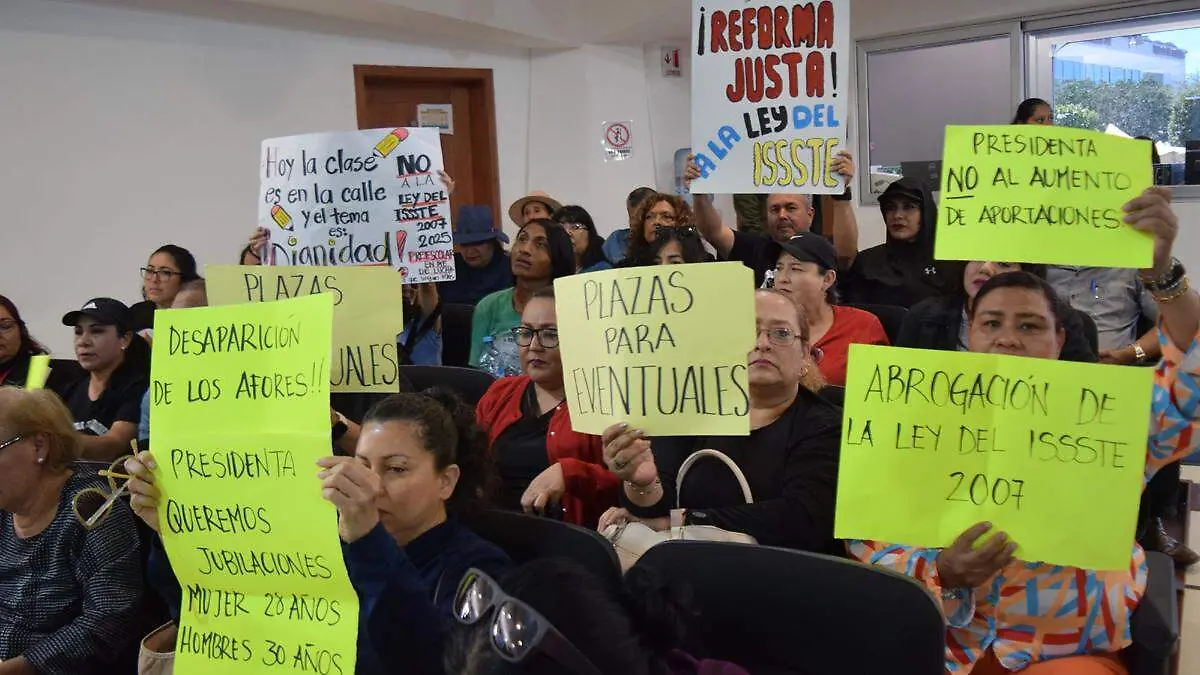 ¡REFORMA
JUSTA!
A LA LEY DEL
ISSSTE
Hoy la clase
es en la calle
y el tema
es:
Dignidad!
NO
A LA
LEY DEL
ISSSTE
2007
2025
PREESCOLAR
EN PIE
DE LUCHA
PRESIDENTA
NO AL AUMENTO
DE APORTACIONES
PLAZAS
PARA
EVENTUALES
PLAZAS
UALES
DESAPARICIÓN
DE LOS AFORES!!
PRESIDENTA
QUEREMOS
JUBILACIONES
MUJER 28 AÑOS
HOMBRES 30 AÑOS
ABROGACIÓN DE
LA LEY DEL ISSSTE
2007